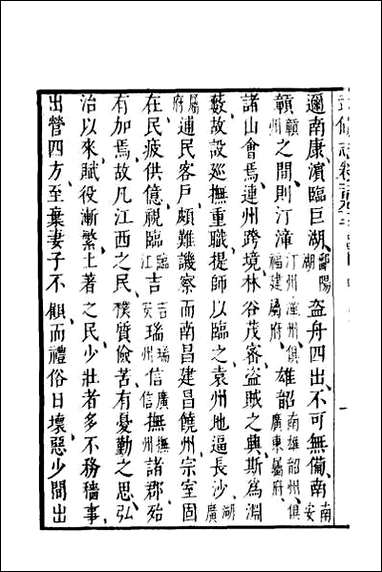 邇南康濱臨巨湖鄱陽湖盜舟四出不可無備南南安
贛贛州之間則汀漳汀州漳州俱福建屬府雄韶南雄韶州俱廣東屬府
諸山會焉連州跨境林谷茂密盜賊之興斯爲淵
藪故設巡撫重職提師以臨之袁州地逼長沙湖廣
屬府逋民客戶頗難譏察而南昌建昌饒州宗室固
在民疲供億視臨臨江吉吉安瑞瑞州信廣信撫撫州諸郡殆
有加焉故凡江西之民樸質儉苦有憂勤之思弘
治以來賦役漸繁土著之民少壯者多不務穡事
出營四方至棄妻子不顧而禮俗日壞惡少間出